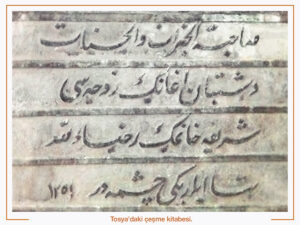 صاحبة الخيرات والحسنات
دشتبان اغانك زوجه سى
شريفه خانمك رضاء لله
بنا ايلديكى چشمه در ١٢٥٩
Tosya'daki çeşme kitabesi.